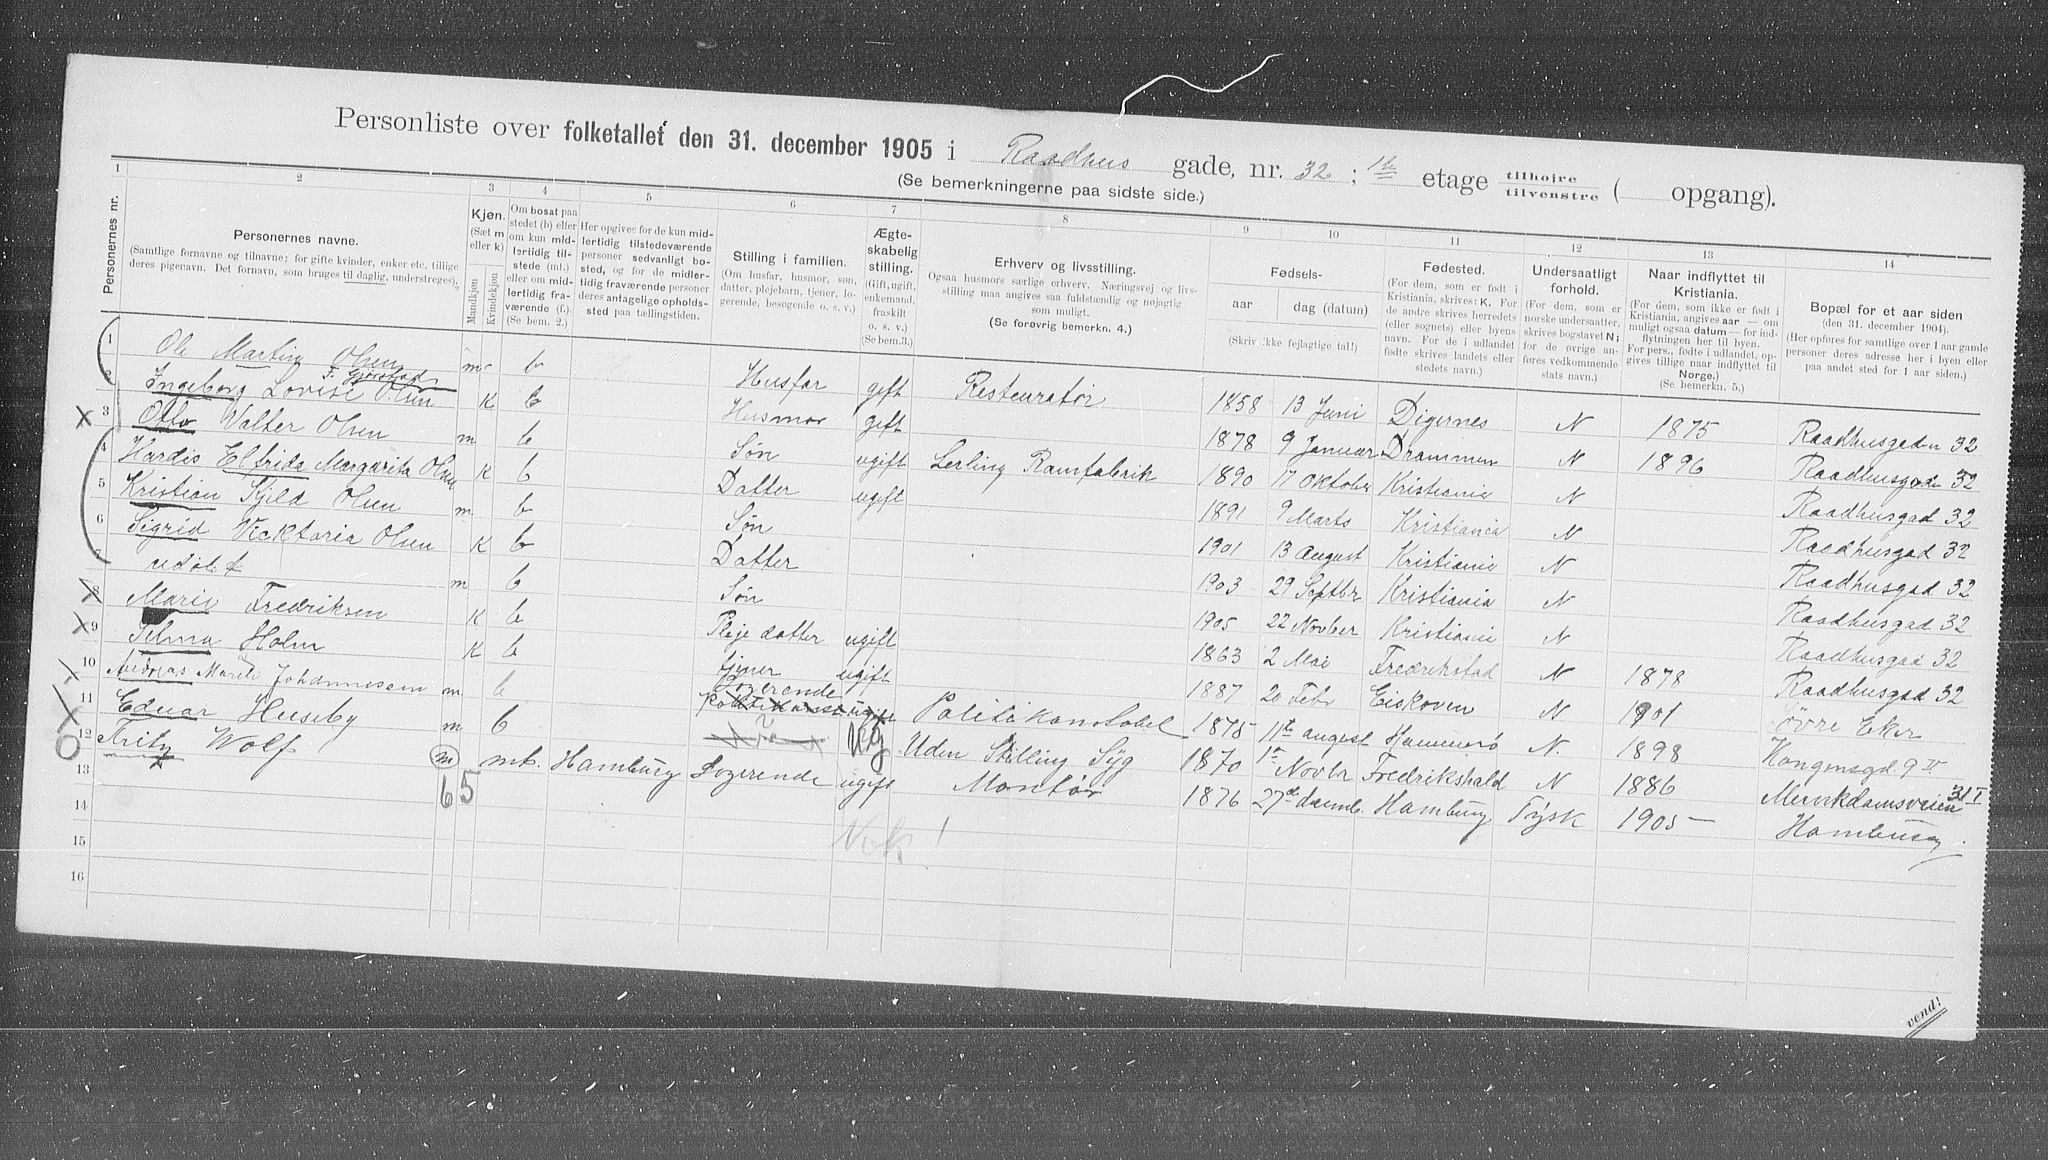 Personliste over folketallet den 31. december 1905 i Raadhus gade, nr. 32 ; 1ste etage tilhøire / tilvenstre ( opgang).
(Se bemerkningerne paa sidste side.)
1 2 3 4 5 6 7 8 9 10 11 12 13 14
Personernes nr.
Personernes navne.
(Samtlige fornavne og tilnavne; for gifte kvinder, enker etc. tillige deres pigenavn. Det fornavn, som bruges til daglig, understreges).
Kjøn.
(Sæt m eller k)
Mandkjøn
Kvindekjøn
Om bosat paa stedet (b) eller om kun midlertidig tilstede (mt.) eller om midlertidig fraværende (f.). (Se bem. 2.)
Her opgives for de kun midlertidig tilstedeværende personer sedvanligt bosted, og for de midlertidig fraværende personer deres antagelige opholdssted paa tællingstiden.
Stilling i familien.
(Om husfar, husmor, søn, datter, plejebarn, tjener, logerende, besøgende o. s. v.)
Ægteskabelig stilling.
(Gift, ugift, enkemand, fraskilt o. s. v.)
(Se bem. 3.)
Erhverv og livsstilling.
Ogsaa husmors særlige erhverv. Næringsvej og livsstilling maa angives saa fuldstændig og nøjagtig som muligt.
(Se forøvrig bemerkn. 4.)
Fødsels-
aar
dag (datum)
(Skriv ikke fejlagtige tal!)
Fødested.
(For dem, som er født i Kristiania, skrives: K. For de andre skrives herredets (eller sognets) eller byens navn. For de i udlandet fødte skrives landets eller stedets navn.)
Undersaatligt forhold.
(For dem, som er norske undersaatter, skrives bogstavet N; for de øvrige anføres vedkommende stats navn.)
Naar indflyttet til Kristiania.
(For dem, som ikke er født i Kristiania, angives aar — om muligt ogsaa datum — for indflytningen her til byen. For pers., fødte i udlandet, opgives tillige naar indflyttet til Norge.)
(Se bemerkn. 5.)
Bopæl for et aar siden
(den 31. december 1904).
(Her opføres for samtlige over 1 aar gamle personer deres adresse her i byen eller paa andet sted for 1 aar siden.)
1 Ole Martin Olsen m b Husfar gift Restauratør 1858 13 Juni Digernes N 1875 Raadhusgaden 32
2 Ingeborg Lovise Olsen K b Husmor gift 1878 9 Januar Drammen N 1896 Raadhusgaden 32
3 Otto Valter Olsen m b Søn ugift Lerling Ramfabrik 1890 17 Oktober Kristiania N Raadhusgad 32
4 Hardis Elfrida Margarita Olsen K b Datter ugift 1891 9 Marts Kristiania N Raadhusgad 32
5 Kristian Kjeld Olsen m b Søn 1901 13 August Kristiania N Raadhusgad 32
6 Sigrid Vicktoria Olsen K b Datter 1903 29 Septbr Kristiania N Raadhusgad 32
7 udøbt m b Søn 1905 22 Novber Kristiania N Raadhusgad 32
8 Marie Fredriksen K b Pleje datter ugift 1863 2 Mai Fredrikstad N 1878 Raadhusgad 32
9 Selma Holm K b tjener ugift 1887 20 Febr Eiskoven N 1901 Øvre Eker
10 Andreas Johannesen m b Logerende ugift Politikonstabel 1875 11te august Hammerø N 1898 Kongensgd. 9 IV
11 Edvar Huseby m b ug Uden Stilling Syg 1870 1ste Novbr Fredrikshald N 1886 Munkdamsveien 31 I
12 Fritz Wolf m mt. Hamburg Logerende ugift Montør 1876 27de decemb. Hamburg Tysk 1905 Hamburg.
13 6 5
14 Nok!
15
16
vend!